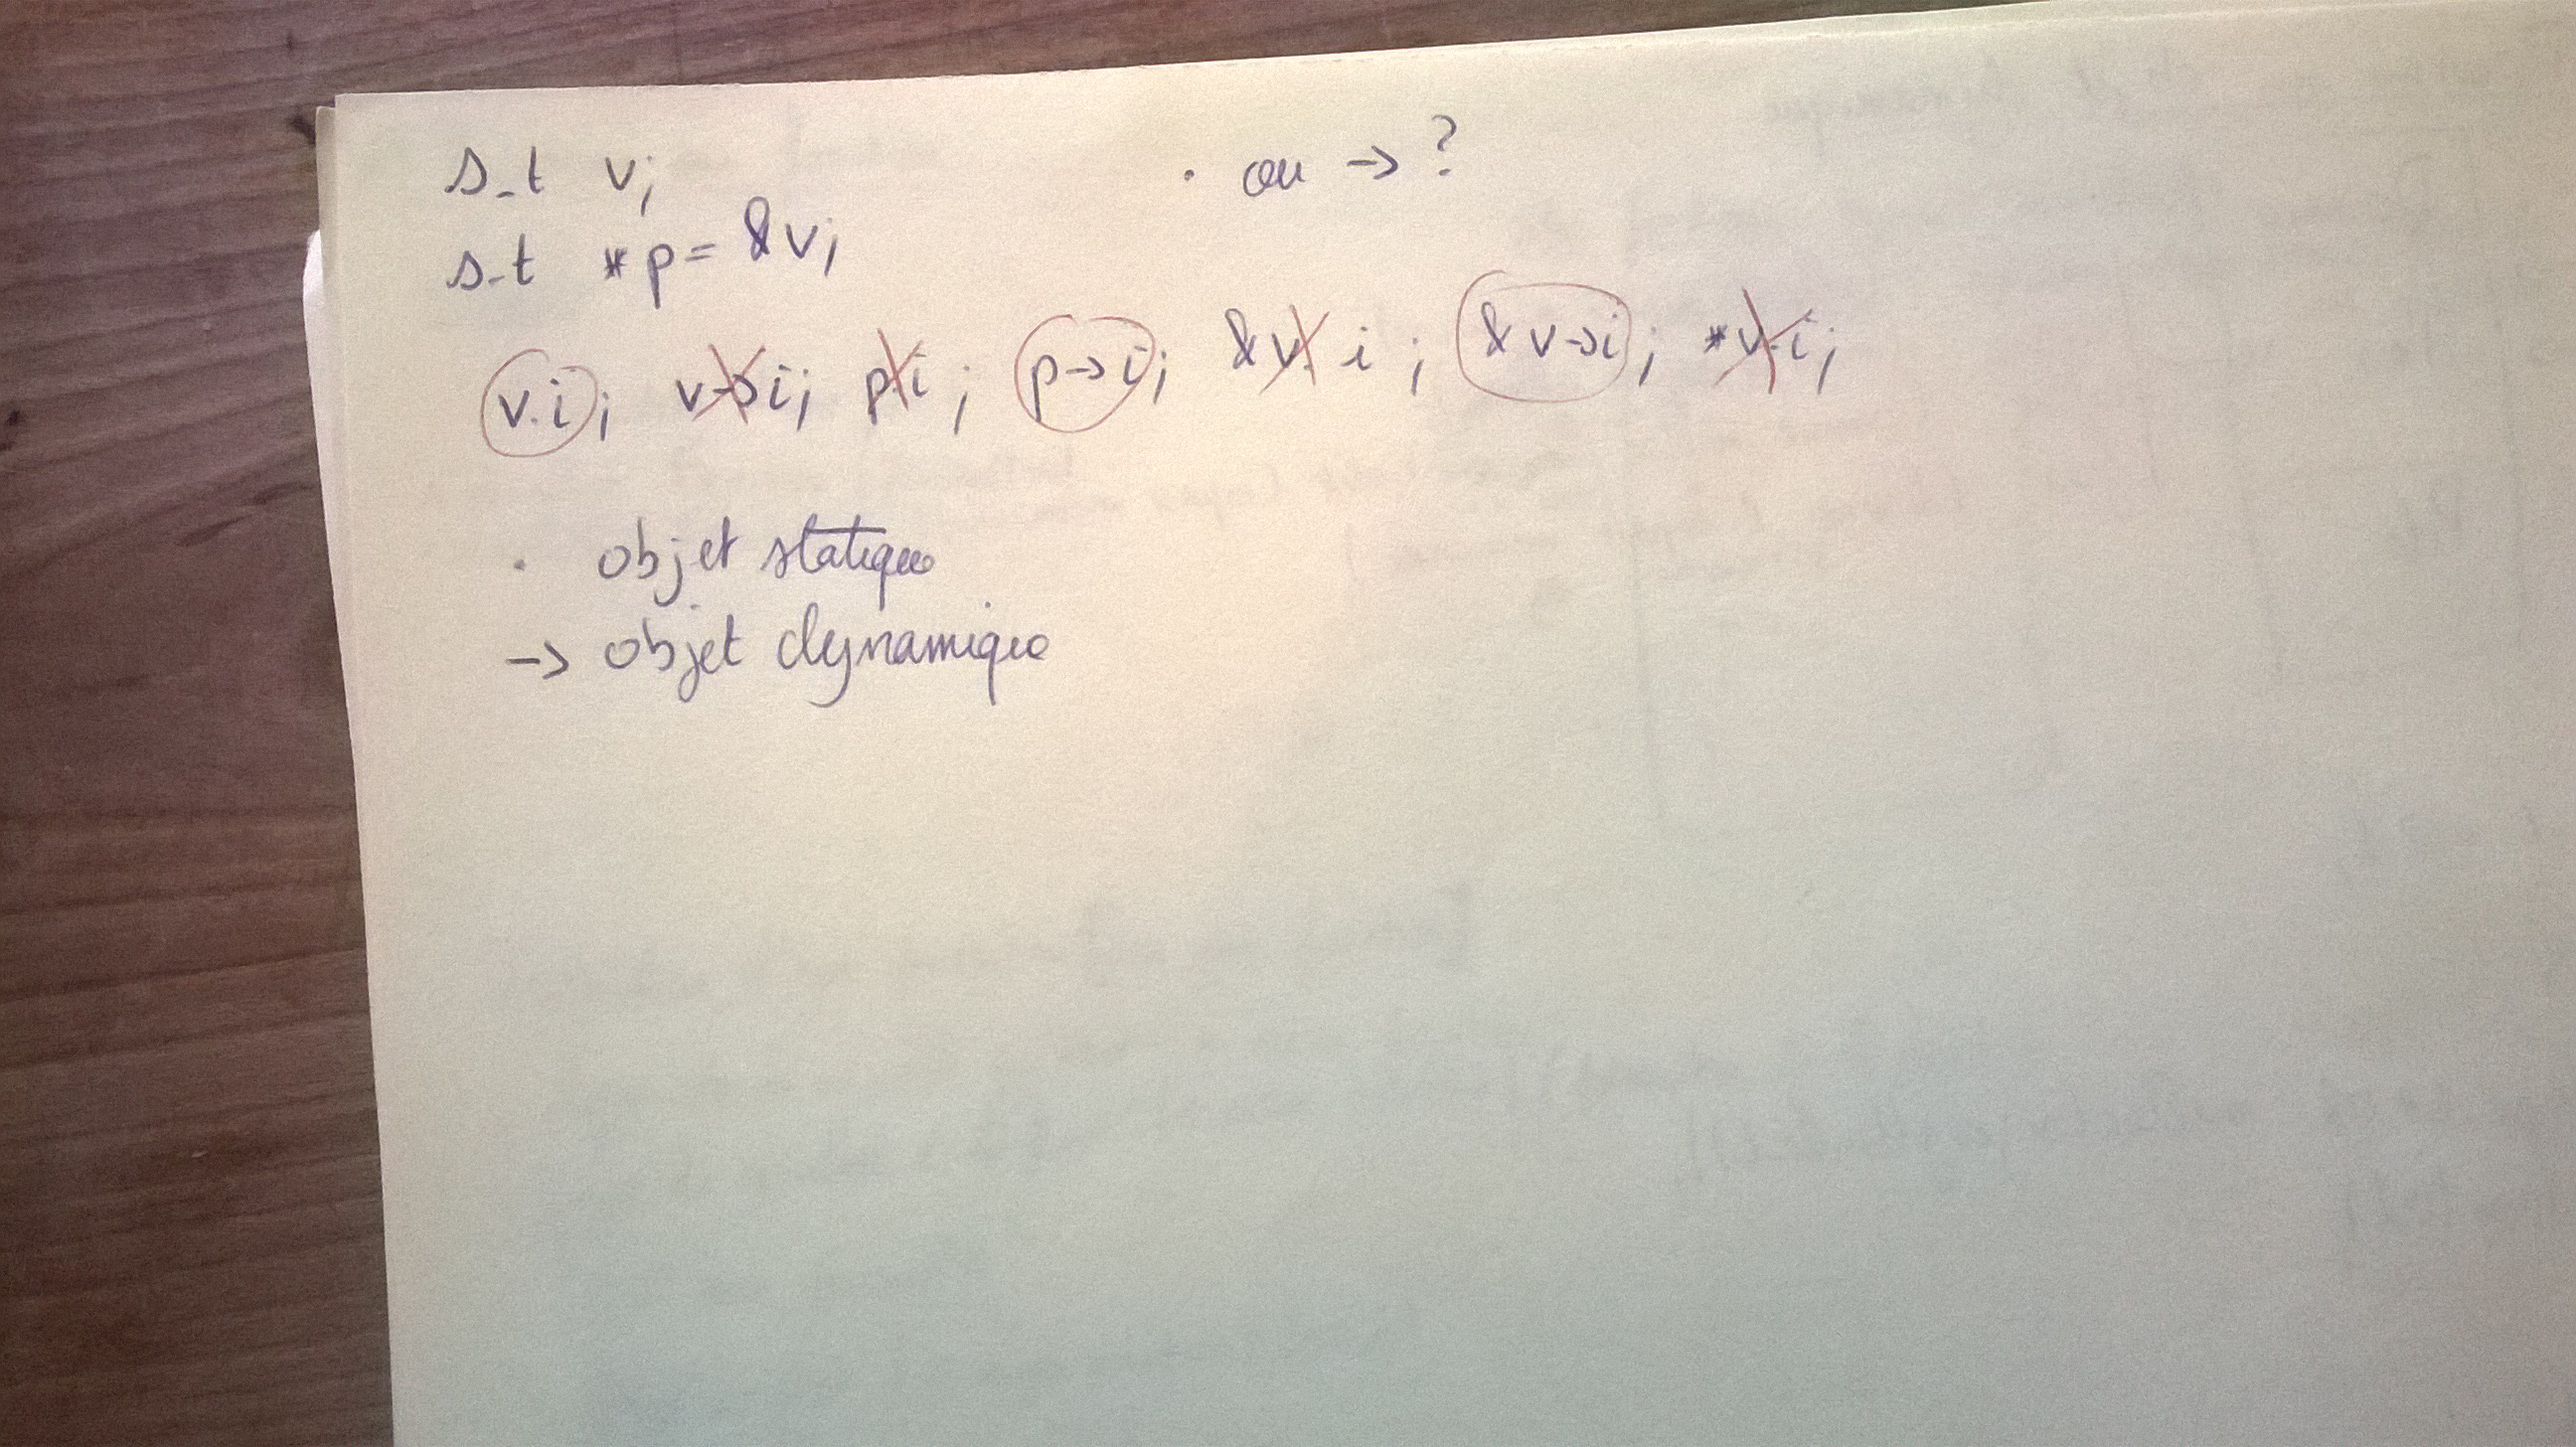 s_t v;
. ou -> ?
s_t *p = &v;
v.i; v->i; p.i; p->i; &v.i; &v->i; *v.i;
. objet statique
-> objet dynamique